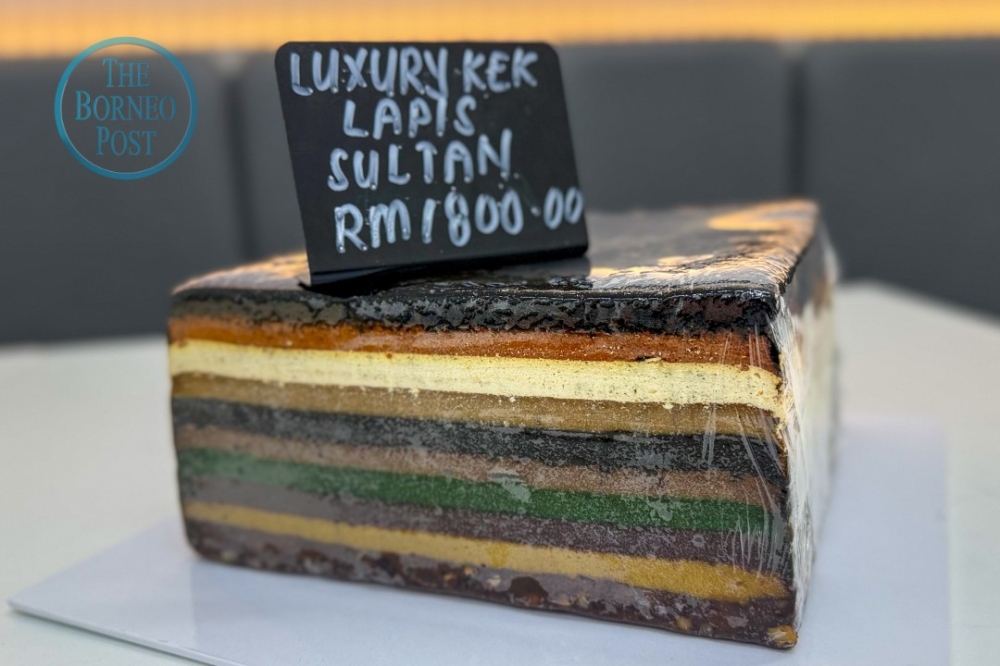 THE
BORNEO
POST
LUXURY KEK
LAPIS
SULTAN
RM1800.00